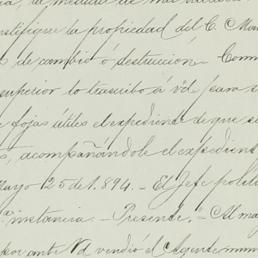 ntifique la propiedad del C. Mon
de cambio ó destrucción. Comu
superior lo trascribo á Vd. para s
fojas útiles el expediente de que s
acompañandole el expedient
Mayo 25 de 1894. - El Jefe politi
instancia. - Presente. - Al ma
por ante Vd vendió el Agente muni